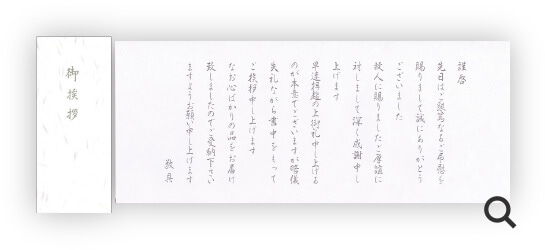 御挨拶
謹啓
先日はご懇篤なるご弔慰を
賜りまして誠にありがとう
ございました
故人に賜りましたご厚誼に
対しまして深く感謝申し
上げます
早速拝趨の上御礼申し上げる
のが本意でございますが略儀
失礼ながら書中をもって
ご挨拶申し上げます
なお心ばかりの品をお届け
致しましたのでご受納下さい
ますようお願い申し上げます
敬具